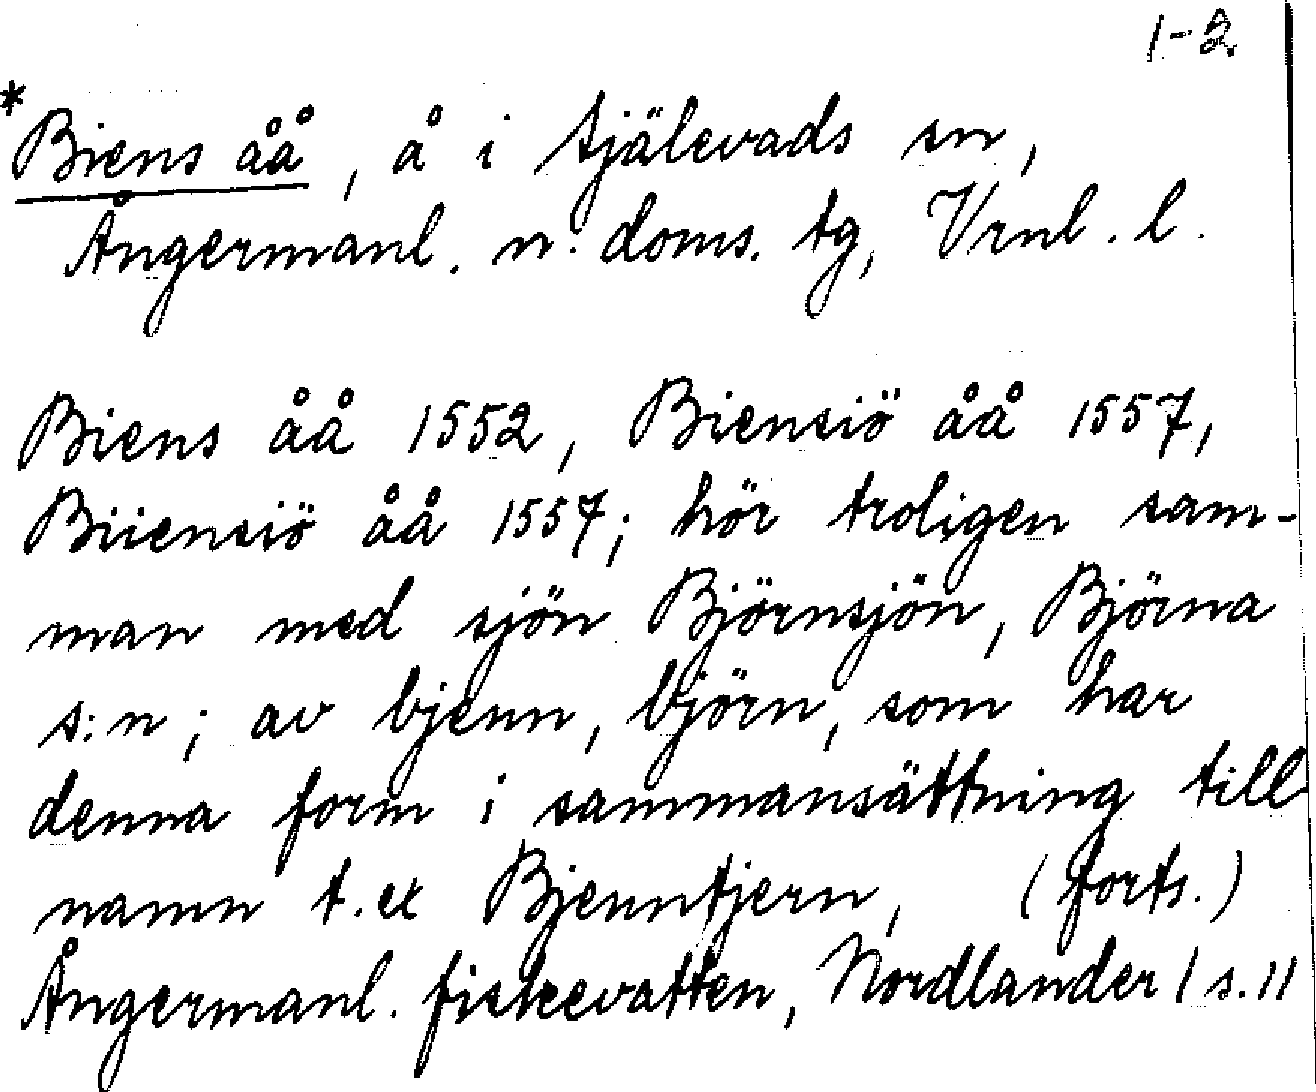 1-2
*Biens åå, å i Själevads sn,
Ångermanl. n. doms. tg, Vrnl. l.
Biens åå 1552, Biensiö åå 1557,
Biiensiö åå 1557; hör troligen sam-
man med sjön Björnsjön, Björna
s:n; av bjenn, björn, som har
denna form i sammansättning till
namn t.ex Bjenntjern, (forts.)
Ångermanl. fiskevatten, Nordlander 1 s. 11